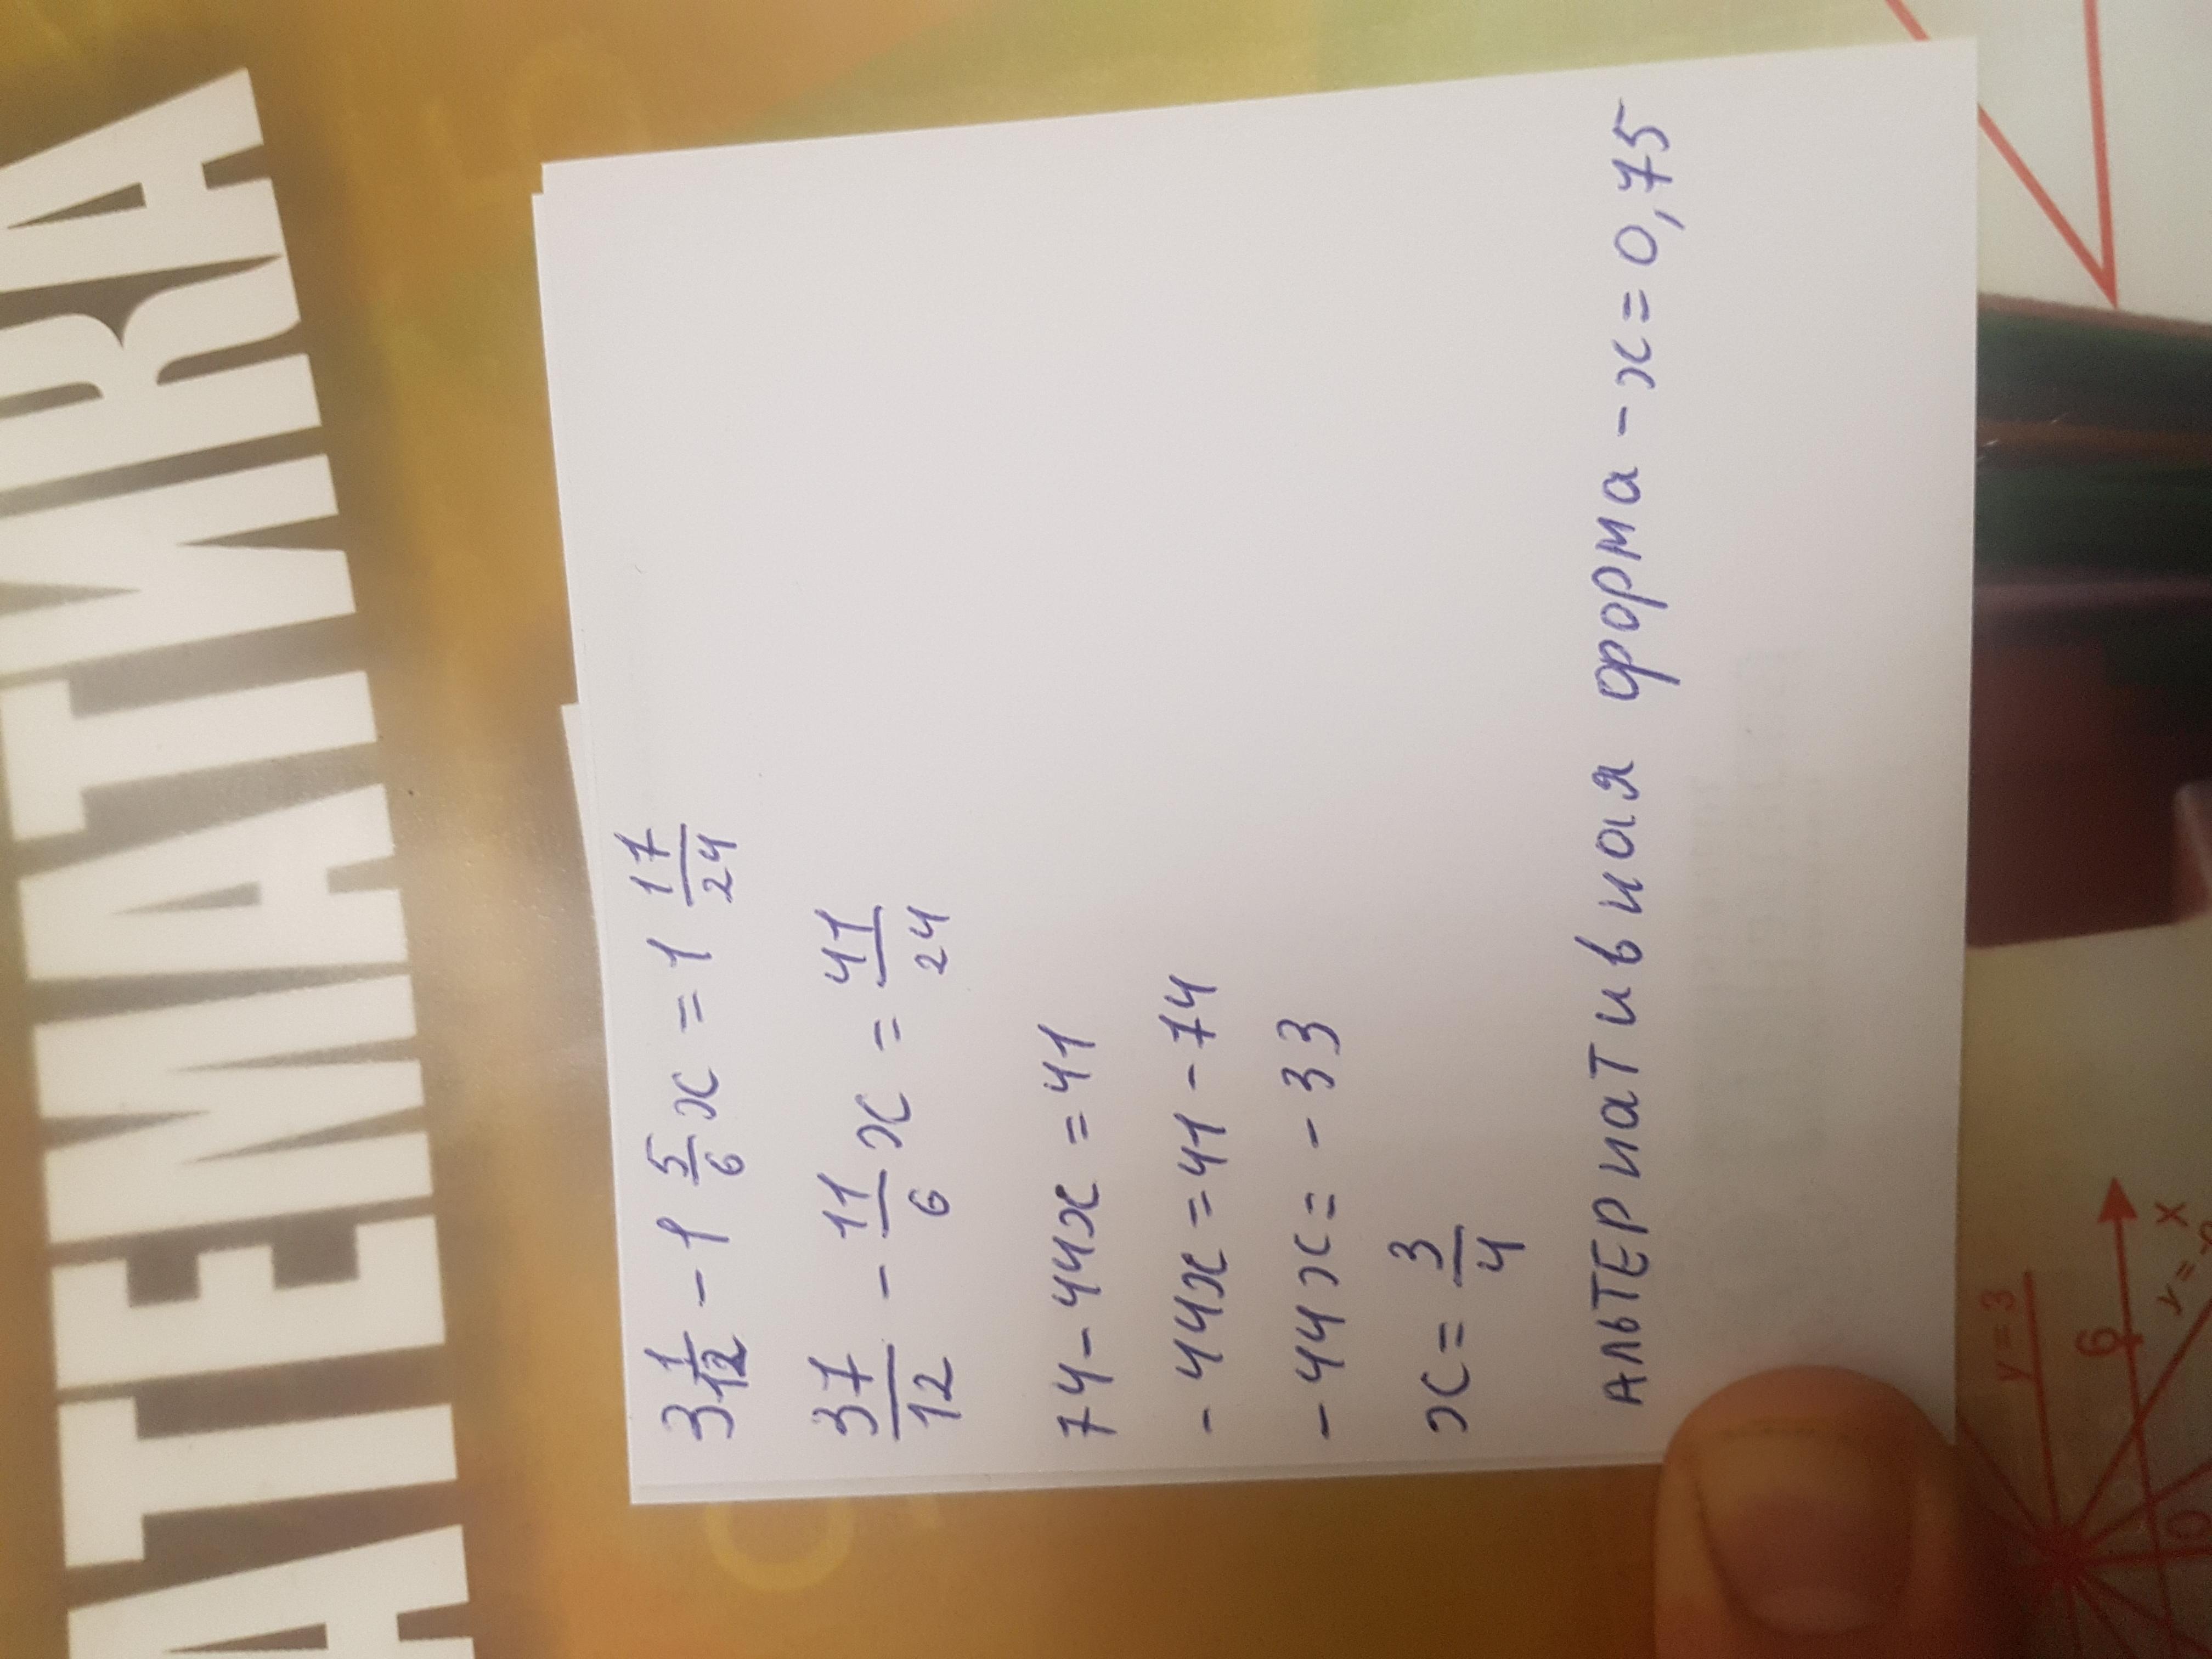 АТЕМАТИКА
3 1/12 - 1 5/6 x = 1 17/24
37/12 - 11/6 x = 41/24
74 - 44x = 41
- 44x = 41 - 74
- 44x = - 33
x = 3/4
АЛЬТЕРНАТИВНАЯ форма - x = 0,75
y = 3
6
x
0